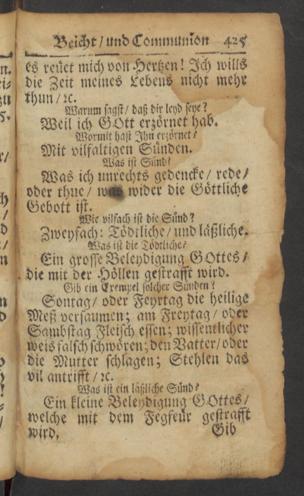 Beicht / und Communion 425
es reüet mich von Hertzen! Jch wills
die Zeit meines Lebens nicht mehr
thun / ꝛc.
Warum sagst / daß dir leyd seye?
Weil ich GOtt erzörnet hab.
Wormit hast Jhn erzörnet /
Mit vilfaltigen Sünden.
Was ist Sünd /
Was ich unrechts gedencke / rede /
oder thue / was wider die Göttliche
Gebott ist.
Wie vilfach ist die Sünd?
Zweyfach: Tödtliche / und läßliche.
Was ist die Tödtliche /
Ein grosse Beleydigung GOttes /
die mit der Höllen gestrafft wird.
Gib ein Exempel solcher Sünden?
Sontag / oder Feyrtag die heilige
Meß versaumen; am Freytag / oder
Sambstag Fleisch essen; wissentlicher
weis falsch schwören; den Vatter / oder
die Mutter schlagen; Stehlen das
vil antrifft / ꝛc.
Was ist ein läßliche Sünd /
Ein kleine Beleydigung GOttes /
welche mit dem Fegfeur gestrafft
wird. Gib